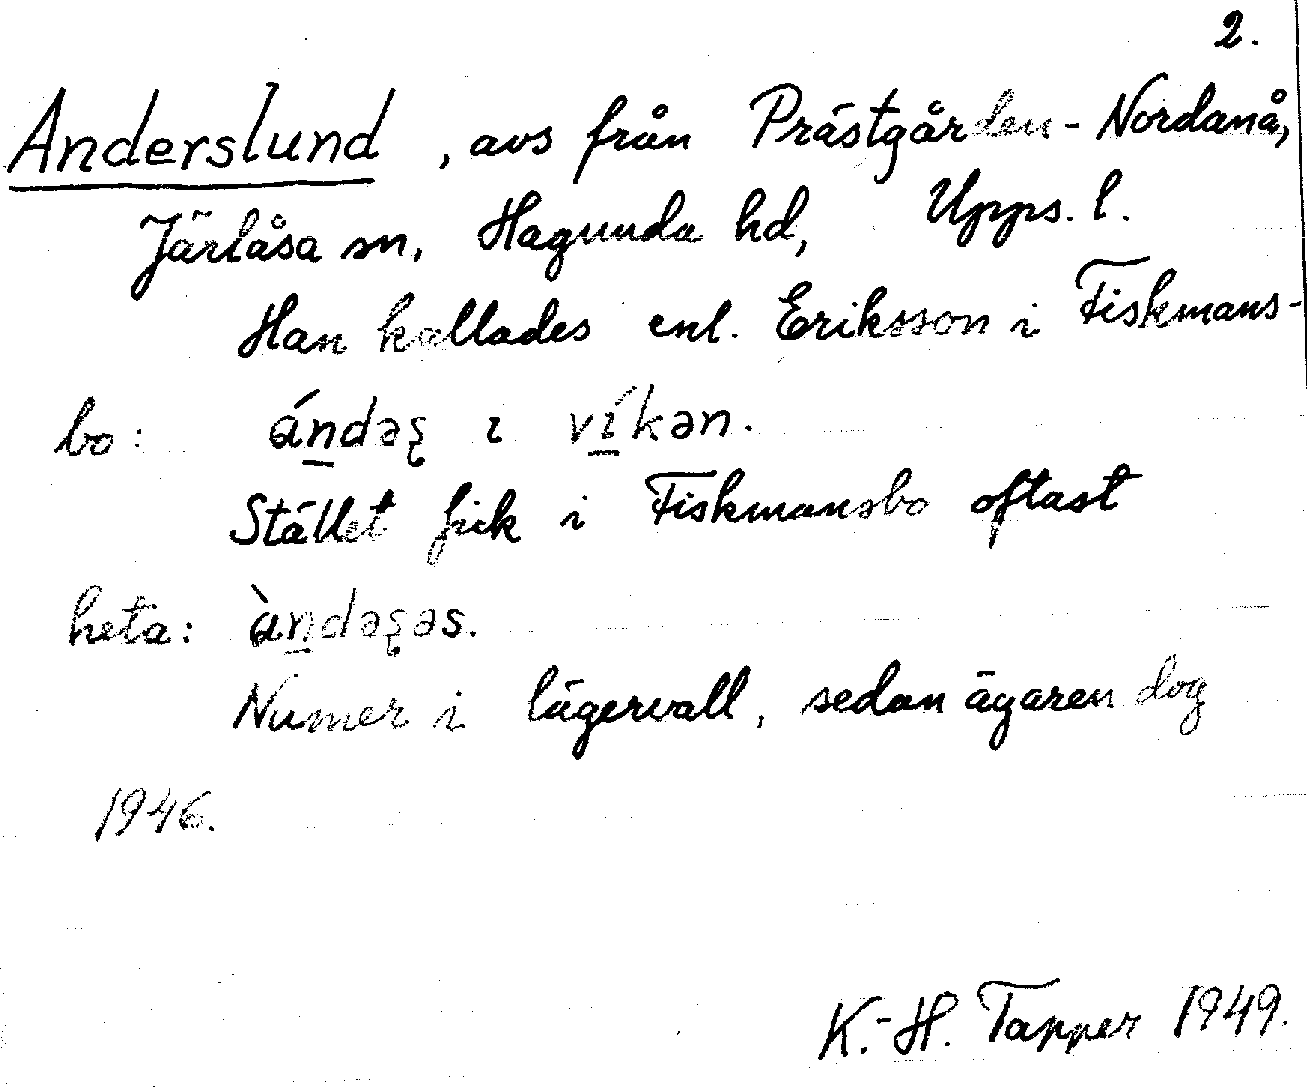 2.
Anderslund, avs från Prästgården-Nordanå,
Järlåsa sn, Hagunda hd, Upps. l.
Han kallades enl. Eriksson i Fiskmans-
bo: án̲dəʂ ɩ vɩ̲́kən.
Stället fick i Fiskmansbo oftast
heta: àn̲dəʂəs.
Numer i lägervall, sedan ägaren dog
1946.
K.-H. Tapper 1949.